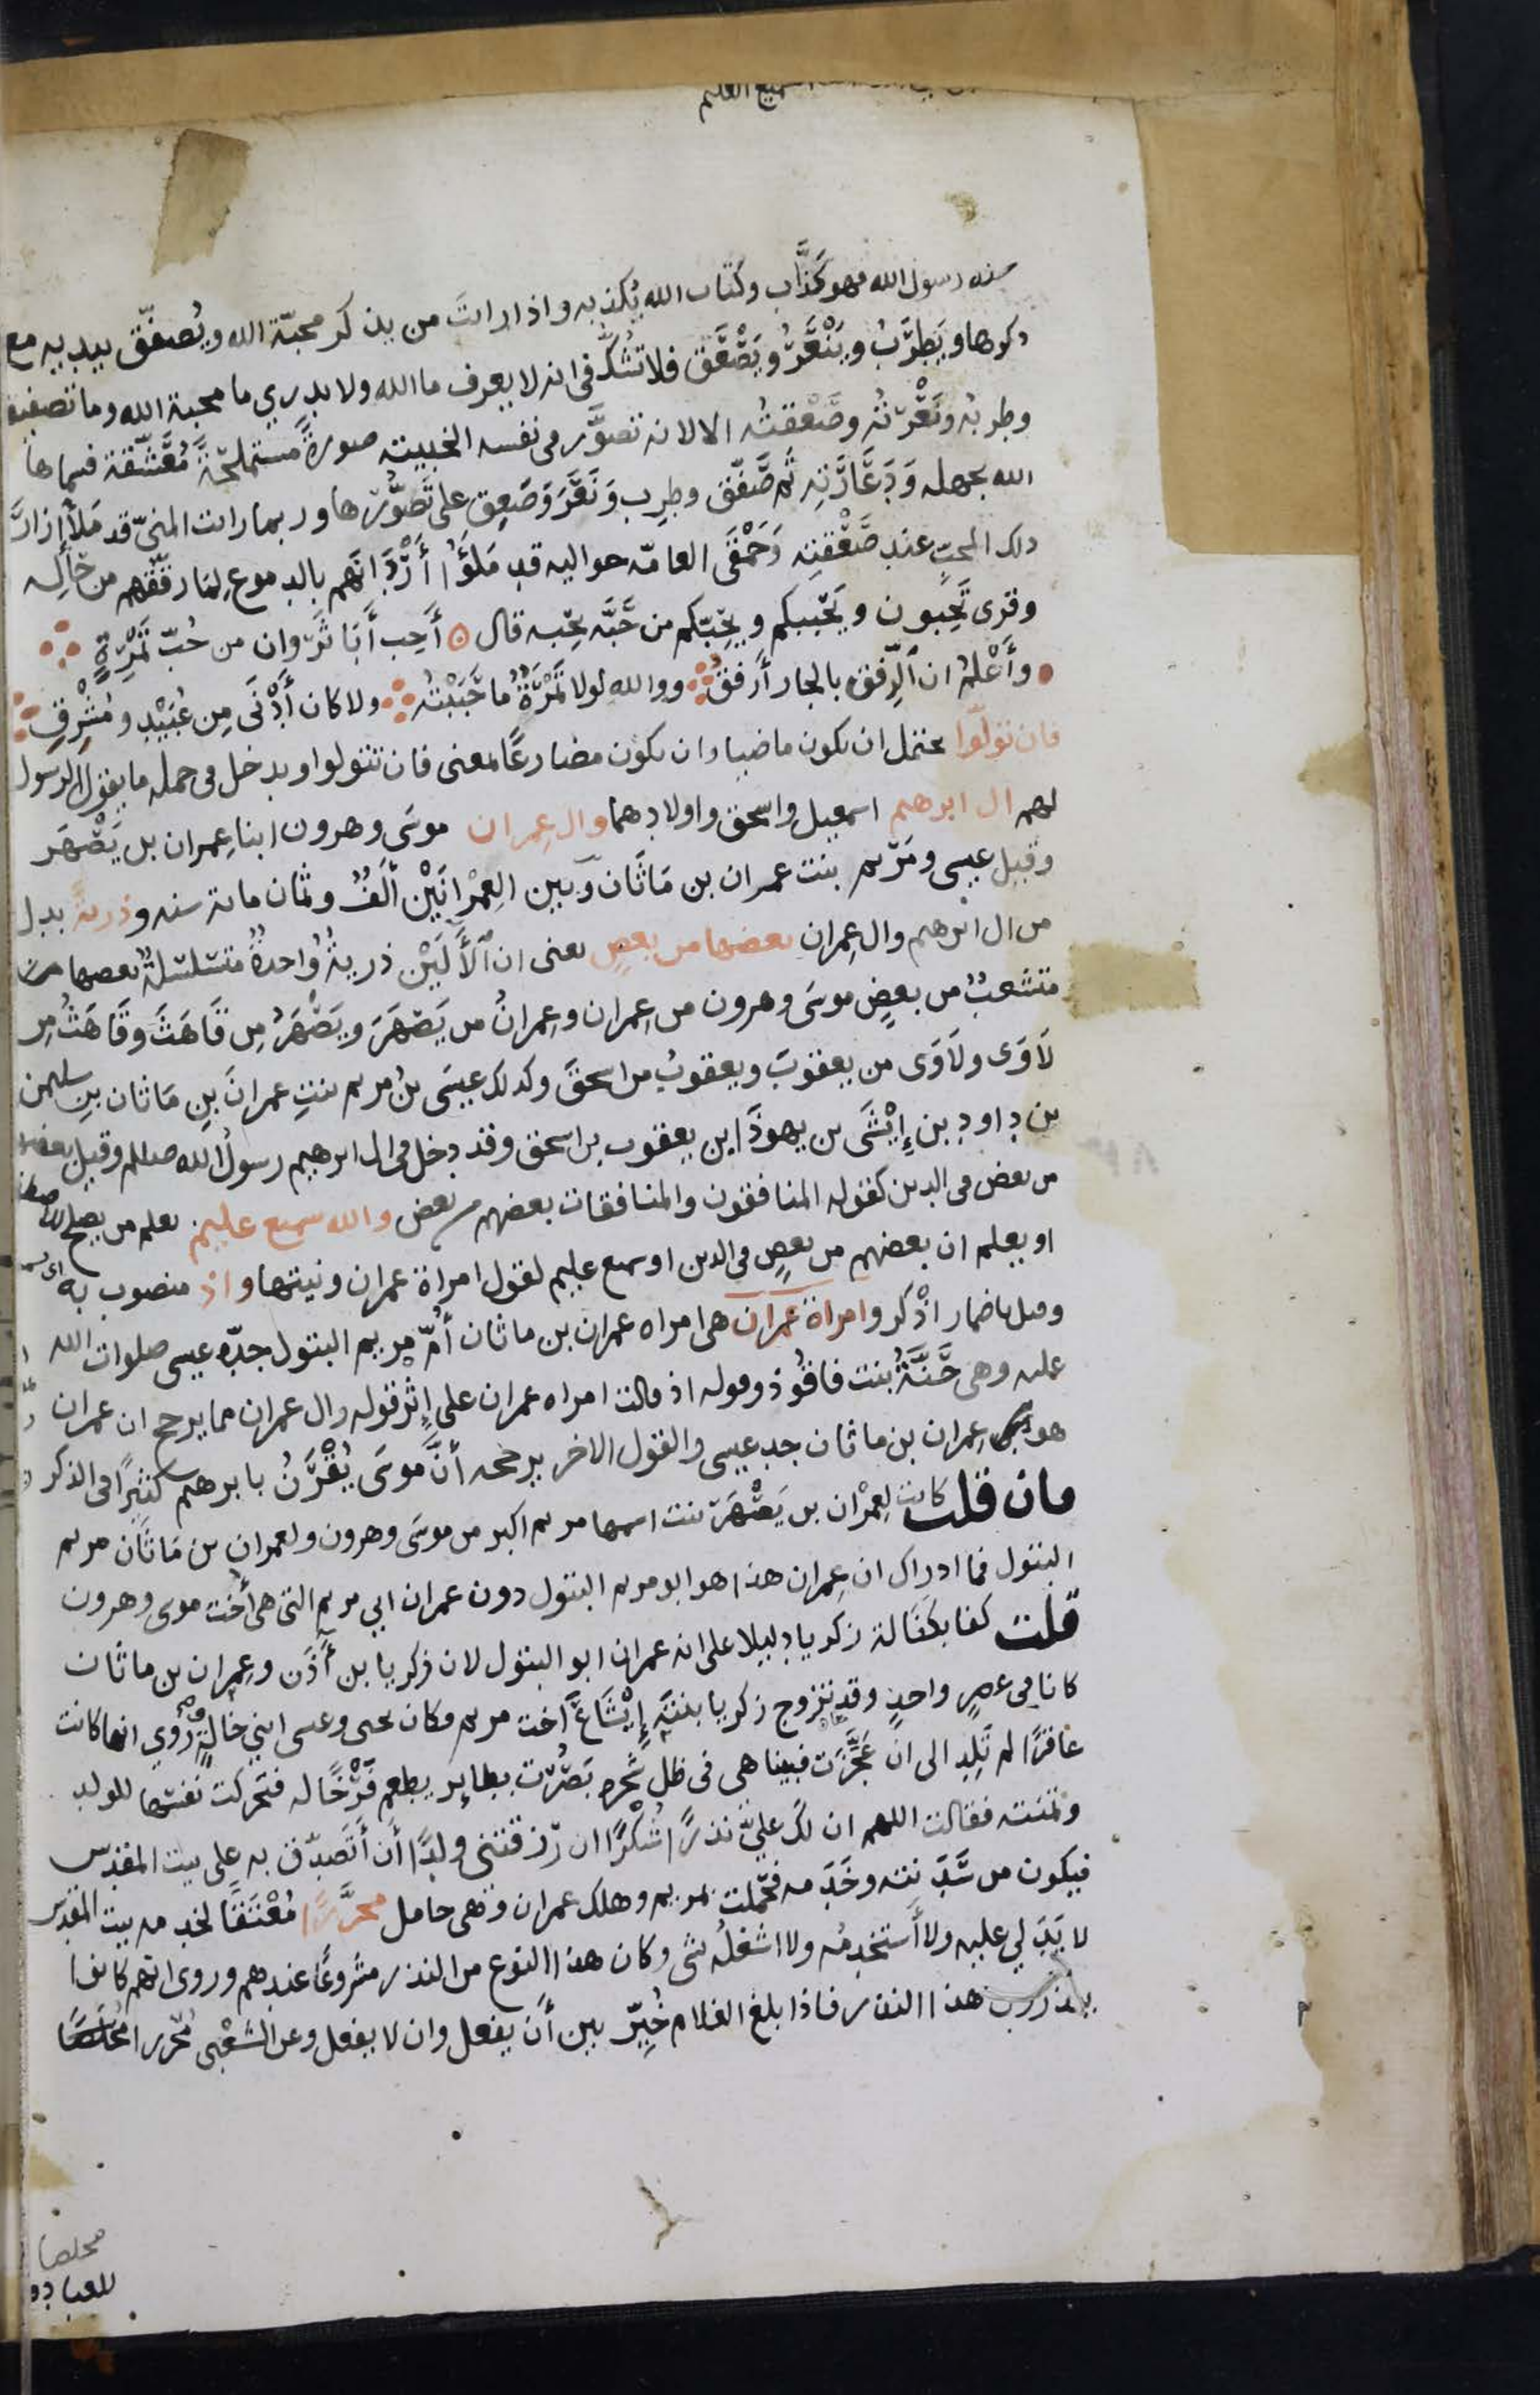 السميع العليم
سنه رسول الله فهو كذَّاب وكتاب الله يُكذبه واذا رايت من يذكر محبّة الله ويُصفّق بيديه مع
ذكرها ويَطرَبُ ويَنْعَرُ ويَصْعَق فلا تشُكّ فى انه لا يعرف ما الله ولا يدري ما محبة الله وما تصفيقه
وطربُه ونَعْرتُه وصَعْقتُه الا لانه تصوَّر فى نفسه الخبيثه صورةً مستملحةً مُعشَّقة فسماها
الله بجهله وَدَعَارَتِه ثم صَفّق وطرِب ونَعَرَ وصَعِق على تَصَوُّرها وربما رايت المنىّ قد مَلأ ازارَ
ذلك المحبّ عند صَعْقتِه وَحَمْقَى العامّه حواليه قد مَلَؤُا أَرْدَانَهم بالدموع لِمَا رقّقهم من حاله
وقرى تَحِبون ويَحْببكم ويَحِبّكم من حَبَّه يحِبه قال أُحِب أَبَا ثَرْوان من حُبّ تَمْرِهِ
وأعْلمُ ان الرّفق بالجار أَرفقُ ووالله لولا تَمْرُهُ ما حَبَبْتُه ولا كان أَدْنَى مِن عُبَيْدٍ ومُشْرِقِ
فان تولّوا يحتمل ان يكون ماضيا وان يكون مضارعًا بمعنى فان تتولوا ويدخل فى جمله ما يقول الرسول
لهم ال ابرهيم اسمعيل واسحق واولادهما وال عِمران موسَى وهرون ابنا عِمران بن يَصْهَر
وقيل عيسى ومَرْيم بنت عمران بن مَاثَان وبين العِمْرانَيْن ألْفٌ وثمان مائة سنه وذريةً بدل
من ال ابرهيم وال عِمران بعضها من بعضٍ يعنى ان الآلَيْن ذريةٌ واحدةٌ متسلسلةٌ بعضها
متشعبٌ من بعضٍ موسَى وهرون من عِمران وعِمرانُ من يَصْهَرَ ويَصْهَرُ مِن قَاهَثَ وقَاهَثُ مِن
لَاوَى ولَاوَى من يعقوبَ ويعقوبُ من اسحقَ وكذلك عيسَى بنُ مريم بنتِ عمرانَ بنِ مَاثان بنِ سليمن
بن داود بن إِيْشَى بن يهوذَا بن يعقوب بن اسحق وقد دخل فى ال ابرهيم رسولُ الله صلعم وقيل بعضها
من بعض فى الدين كقوله المنافقون والمنافقات بعضهم من بعض والله سميع عليم يعلم من يصلح للاصطفا
او يعلم ان بعضهم من بعضٍ فى الدين او سميع عليم لقول امراة عمران ونيتها واذ منصوب به
وقيل باضمار اذْكر وامراة عمران هى امراه عمران بن ماثان أُمّ مريم البتول جدّه عيسى صلوات الله
عليه وهى حَنَّةُ بنت فاقُوذ وقوله اذ قالت امراه عمران على إِثْر قوله وال عمران مما يرجح ان عمران
هو عِمران بن ماثان جد عيسى والقول الاخر يرجحه أنَّ موسَى يُقْرَنُ بابرهيم كثيرًا فى الذكر
فان قلت كانت لِعمْران بن يَصْهَرَ بنت اسمها مريم اكبر من موسَى وهرون ولعمران بن مَاثَان مريم
البتول فما ادراك ان عِمران هذا هو ابو مريم البتول دون عمران ابي مريم التى هى أخت موسى وهرون
قلت كفا بكفالة زكريا دليلا على انه عمران ابو البتول لان زكريا بن آذَن وعِمران بن ماثان
كانا فى عصرٍ واحدٍ وقد تزوج زكريا بنتَه إِيْشَاعَ اخت مريم فكان يحيى وعيسى ابني خالةٍ رُوي انها كانت
عاقرًا لم تَلِد الى ان عَجَّزَت فبينا هى فى ظل شجره بَصُرَت بطاير يطعم فَرْخًا له فتحركت نفسها للولد
وتمنته فقالت اللهم ان لك عليّ نذرًا شُكْرًا ان رزقتنى ولدًا أَن أَتَصدّق به على بيت المقدس
فيكون من سَدَنته وخَدَمه فحملت بمريم وهلك عمران وهى حامل محرَّرًا مُعْتَقًا لخدمه بيت المقدس
لا يَدَ لي عليه ولا أَستخدِمُه ولا اشغلُه بشى وكان هذا النوع من النذر مشروعًا عندهم وروى انهم كانوا
ينذرون هذا النذر فاذا بلغ الغلام خُيّر بين أَن يفعل وان لا يفعل وعن الشعْبى مُحرّرا مُخلصًا
مخلصا
للعباده